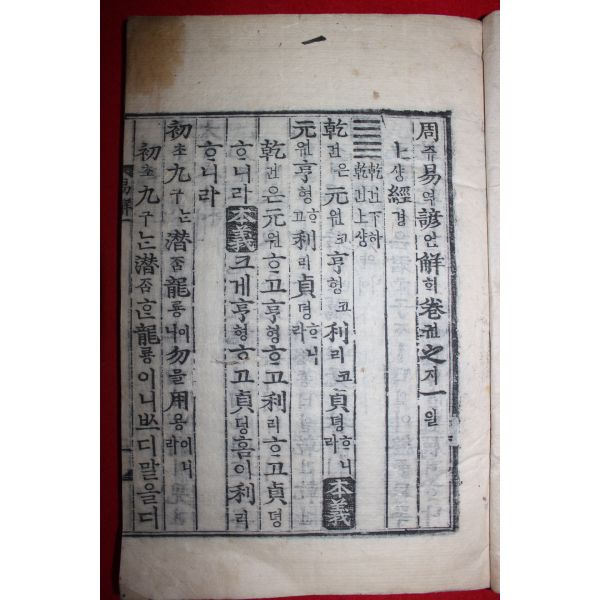 一
周쥬易역諺언解ᄒᆡ卷권之지一일
上샹經경
䷀ 乾건下하 乾건上샹
乾건은元원코亨형코利리코貞뎡ᄒᆞ니라 本義
元원亨형ᄒᆞ고利리貞뎡ᄒᆞ니라
乾건은元원ᄒᆞ고亨형ᄒᆞ고利리ᄒᆞ고貞뎡
ᄒᆞ니라 本義 크게亨형ᄒᆞ고貞뎡홈이利리
ᄒᆞ니라
初초九구ᄂᆞᆫ潛ᄌᆞᆷ龍룡이니勿믈用용이니라
初초九구ᄂᆞᆫ潛ᄌᆞᆷᄒᆞᆫ龍룡이니ᄡᅳ디말을디